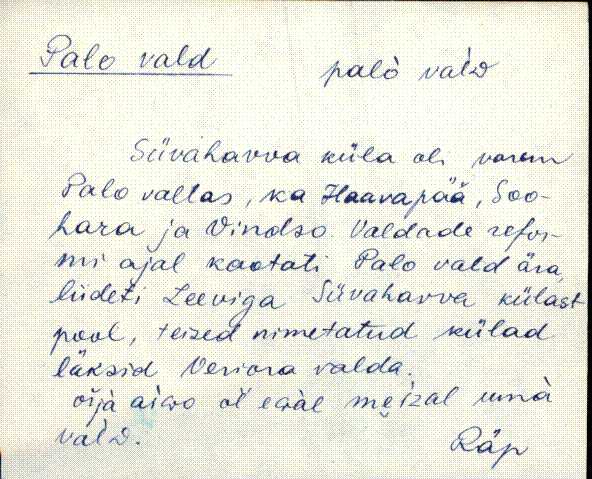 Palo vald
palò vaĺD
Süvahavva küla oli varem
Palo vallas, ka Haavapää, Soo-
hara ja Vindso. Valdade refor-
mi ajal kaotati Palo vald ära,
liideti Leeviga Süvahavva külast
pool, teised nimetatud külad
läksid Veriora valda.
vaĺD.
Räp